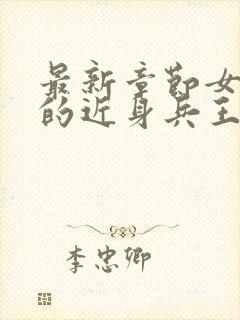 最新章节女
的近身兵王
李忠卿